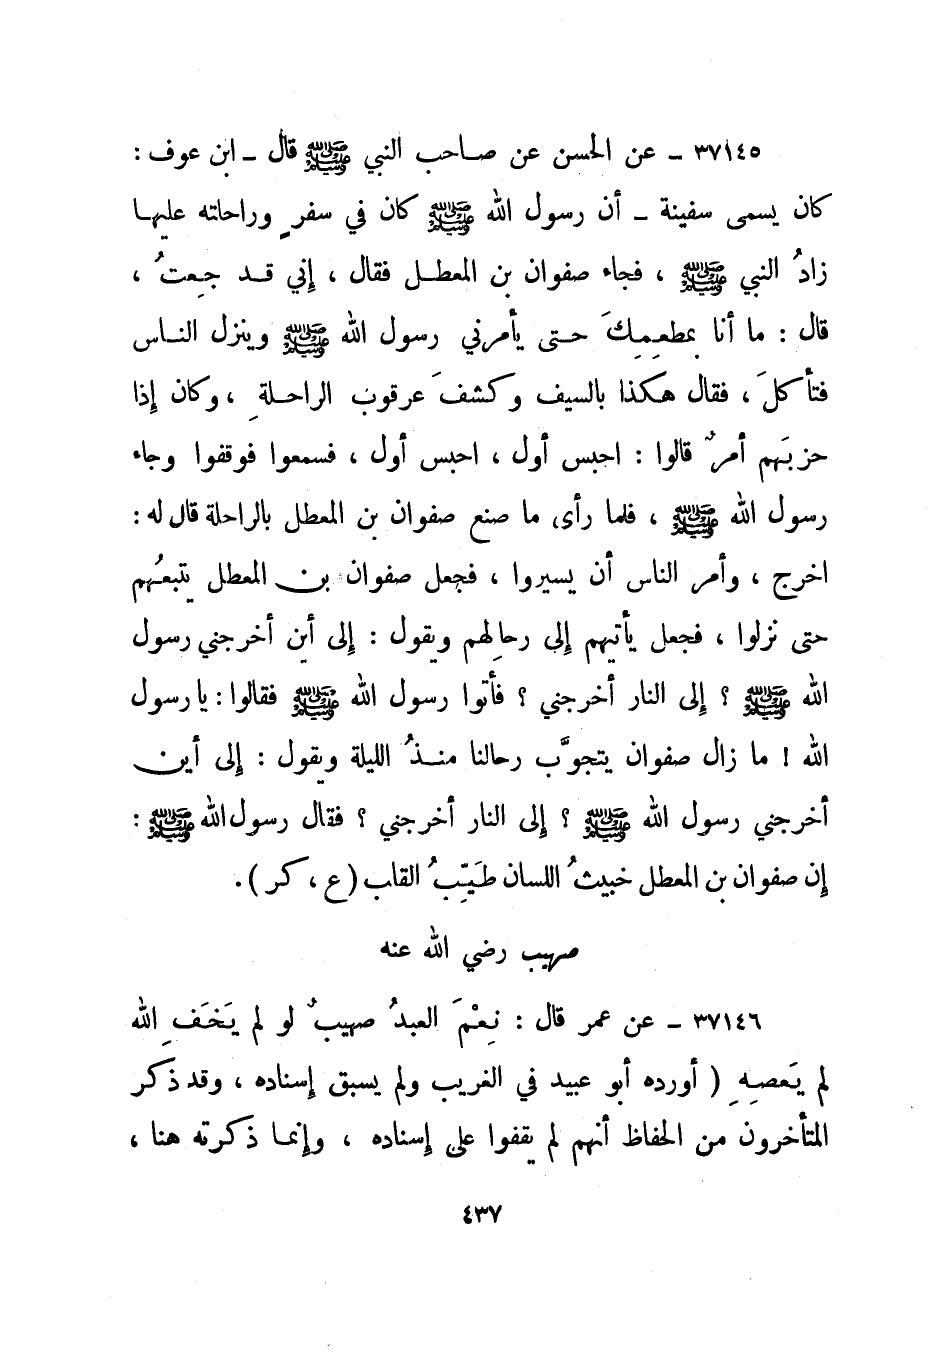 ٣٧١٤٥ – عن الحسن عن صاحب النبي ﷺ قال – ابن عوف :
كان يسمى سفينة – أن رسول الله ﷺ كان في سفرٍ وراحلته عليها
زادُ النبي ﷺ ، فجاء صفوان بن المعطل فقال ، إني قد جعتُ ،
قال : ما أنا بمطعِمِكَ حتى يأمرني رسول الله ﷺ وينزل الناس
فتأكلَ ، فقال هكذا بالسيف وكشفَ عرقوب الراحلةِ ، وكان إذا
حزبَهم أمرٌ قالوا : احبس أول ، احبس أول ، فسمعوا فوقفوا وجاء
رسول الله ﷺ ، فلما رأى ما صنع صفوان بن المعطل بالراحلة قال له :
اخرج ، وأمر الناس أن يسيروا ، فجعل صفوان بن المعطل يتبعُهم
حتى نزلوا ، فجعل يأتيهم إلى رحالِهم ويقول : إلى أين أخرجني رسول
الله ﷺ ؟ إلى النار أخرجني ؟ فأتوا رسول الله ﷺ فقالوا : يا رسول
الله ! ما زال صفوان يتجوَّب رحالنا منذُ الليلة ويقول : إلى أين
أخرجني رسول الله ﷺ ؟ إلى النار أخرجني ؟ فقال رسول الله ﷺ :
إن صفوان بن المعطل خبيثُ اللسان طَيِّبُ القلب (ع ، كر ) .
صهيب رضي الله عنه
٣٧١٤٦ – عن عمر قال : نِعْمَ العبدُ صهيبٌ لو لم يَخَفِ الله
لم يَعصِهِ ( أورده أبو عبيد في الغريب ولم يسبق إسناده ، وقد ذكر
المتأخرون من الحفاظ أنهم لم يقفوا على إسناده ، وإنما ذكرته هنا ،
٤٣٧